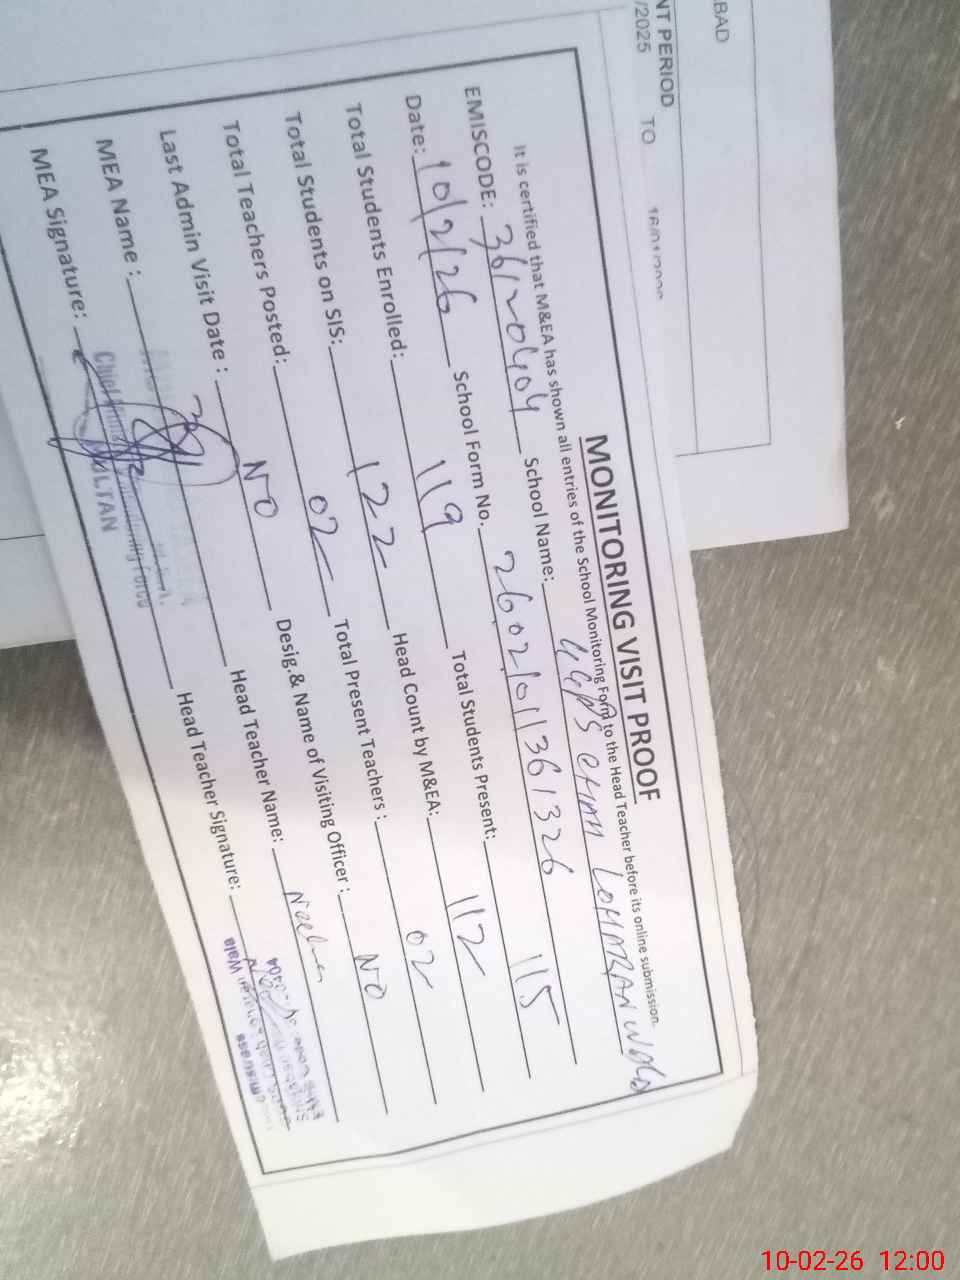 BAD
NT PERIOD
/2025 TO 16/01/2026
MONITORING VISIT PROOF
It is certified that M&EA has shown all entries of the School Monitoring Form to the Head Teacher before its online submission.
EMISCODE: 36120404 School Name: GGPS CHAH LOHARAN WALA
Date: 10/2/26 School Form No. 26021011361326
Total Students Enrolled: 119 Total Students Present: 115
Total Students on SIS: 122 Head Count by M&EA: 112
Total Teachers Posted: 02 Total Present Teachers : 02
Last Admin Visit Date : NO Desig.& Name of Visiting Officer : NO
MEA Name : Head Teacher Name:
MEA Signature: Head Teacher Signature:
Chief MULTAN
Wala
10-02-26 12:00